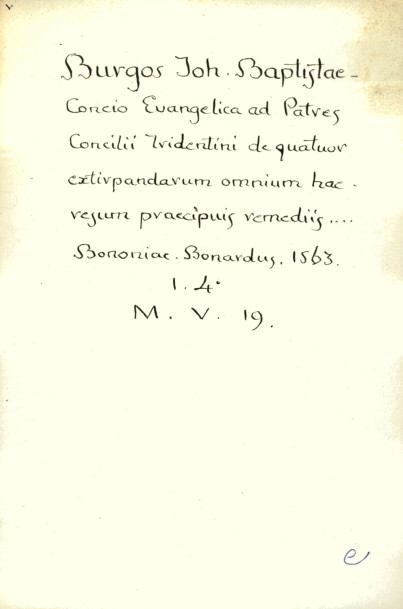 Burgos Joh. Baptistae -
Concio Evangelica ad Patres
Concilii Tridentini de quatuor
extirpandarum omnium hae -
resum praecipuis remediis....
Bononiae. Bonardus. 1563.
1. 4°
M. V. 19.
e